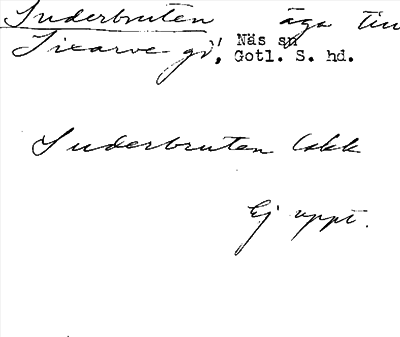 Suderbruten äga till
Sixarve gd, Näs sn
Gotl. S. hd.
Suderbruten Lokk
Ej uppt.